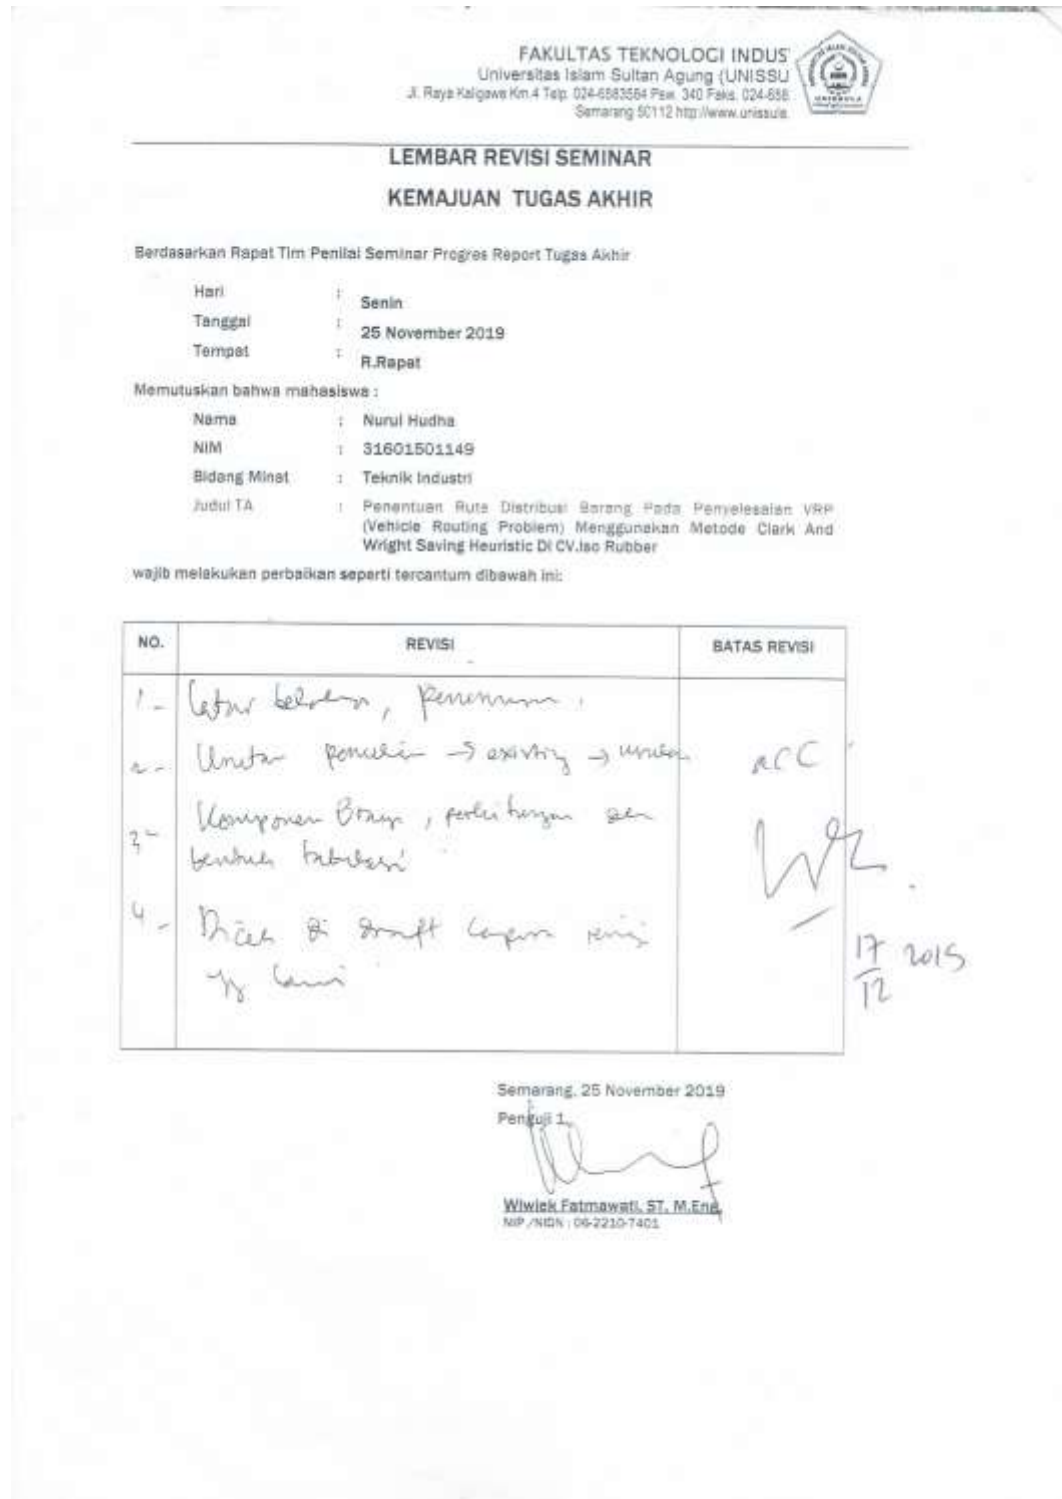 FAKULTAS TEKNOLOGI INDUS
Universitas Islam Sultan Agung (UNISSU
Jl. Raya Kaligawe Km.4 Telp. 024-6583584 Psw. 340 Faks. 024-658
Semarang 50112 http://www.unissula.
UNISSULA
LEMBAR REVISI SEMINAR
KEMAJUAN TUGAS AKHIR
Berdasarkan Rapat Tim Penilai Seminar Progres Report Tugas Akhir
Hari : Senin
Tanggal : 25 November 2019
Tempat : R.Rapat
Memutuskan bahwa mahasiswa :
Nama : Nurul Hudha
NIM : 31601501149
Bidang Minat : Teknik Industri
Judul TA : Penentuan Rute Distribusi Barang Pada Penyelesaian VRP
(Vehicle Routing Problem) Menggunakan Metode Clark And
Wright Saving Heuristic Di CV.Iso Rubber
wajib melakukan perbaikan seperti tercantum dibawah ini:
NO. REVISI BATAS REVISI
1 - Latar belakang,
2 - → existing → usulan
acc
3 - Komponen Biaya, perhitungan
bentuk tabulasi
4 - Dicek di draft laporan revisi
yg
17/12 2019
Semarang, 25 November 2019
Penguji 1,
Wiwiek Fatmawati, ST, M.Eng
NIP /NIDN : 06-2210-7401